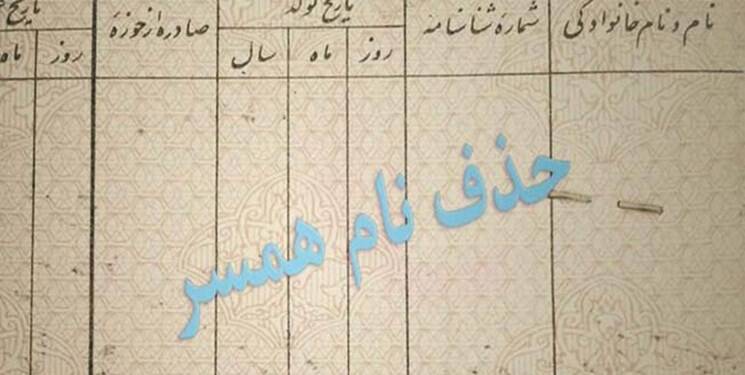 نام و نام خانوادگی شمارهٔ شناسنامه تاریخ تولد صادره از حوزهٔ
روز ماه سال روز ماه
حذف نام همسر